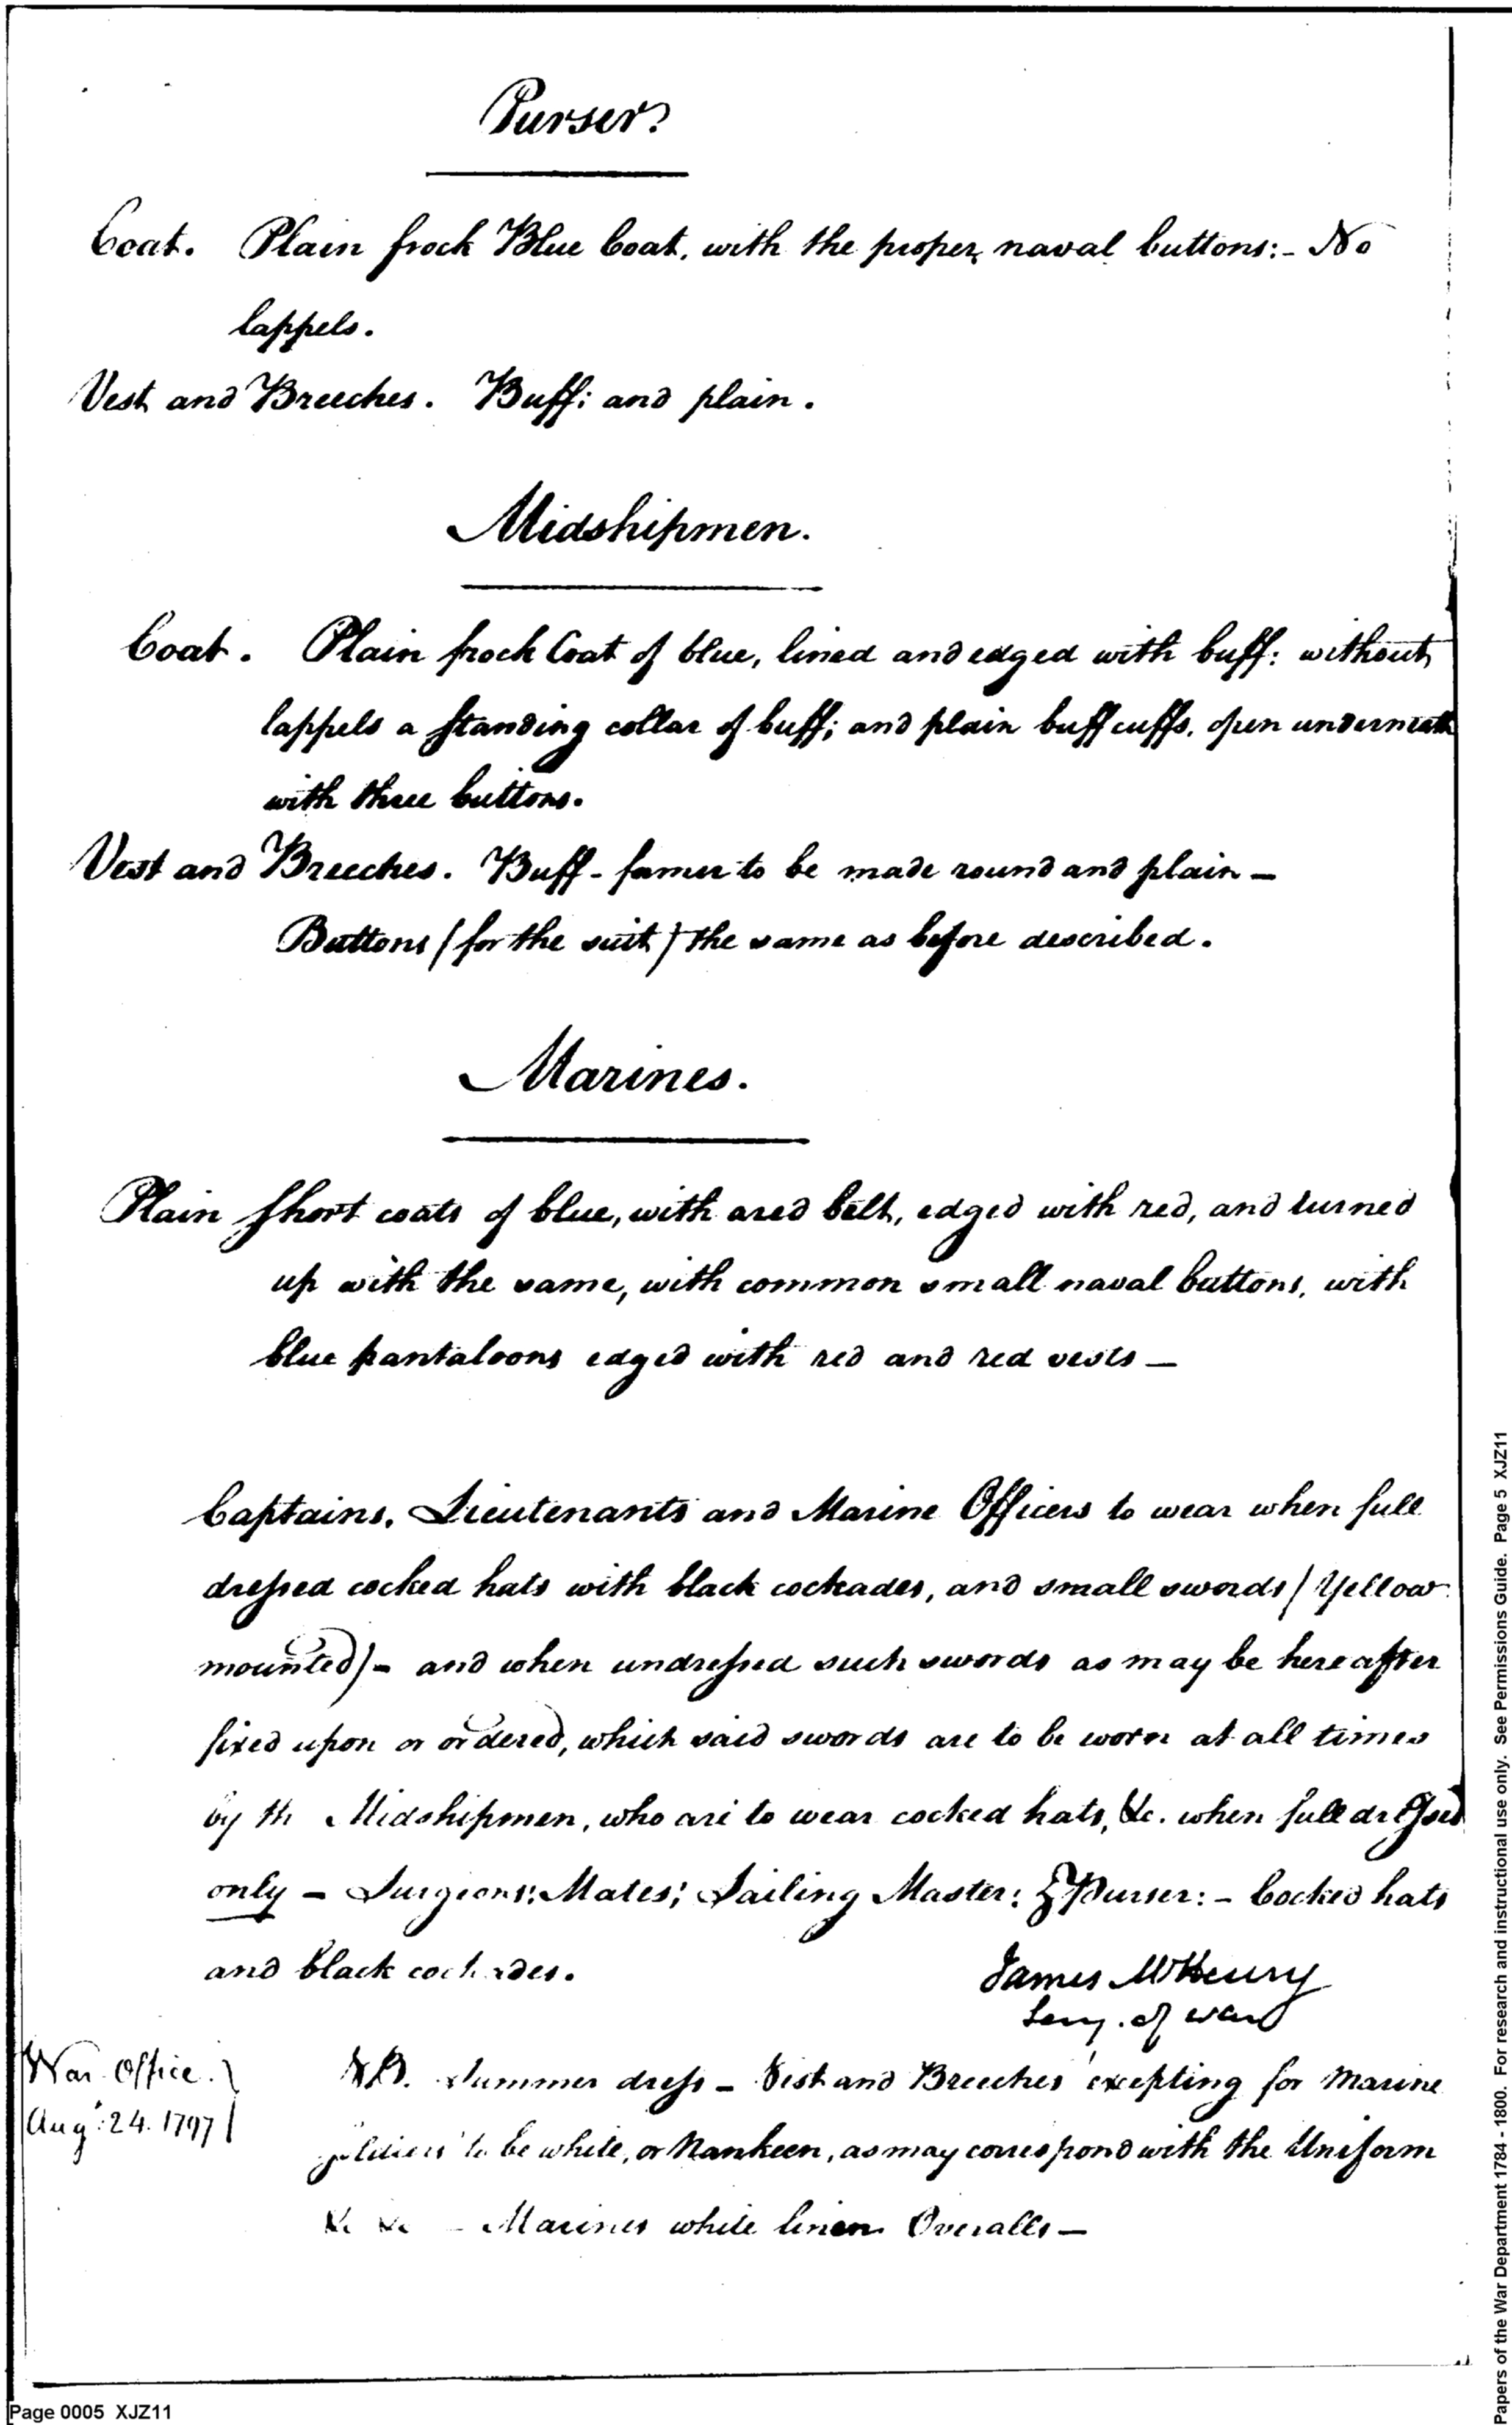 Purser.
Coat. Plain frock Blue Coat, with the proper naval buttons:- No
lappels.
Vest and Breeches. Buff: and plain.
Midshipmen.
Coat. Plain frock Coat of blue, lined and edged with buff: without
lappels a standing collar of buff; and plain buff cuffs, open underneath
with three buttons.
Vest and Breeches. Buff - former to be made round and plain —
Buttons (for the suit) the same as before described.
Marines.
Plain short coats of blue, with a red belt, edged with red, and turned
up with the same, with common small naval buttons, with
blue pantaloons edged with red and red vests —
Captains, Lieutenants and Marine Officers to wear when full
dressed cocked hats with black cockades, and small swords (Yellow
mounted) - and when undressed such swords as may be hereafter
fixed upon or ordered, which said swords are to be worn at all times
by the Midshipmen, who are to wear cocked hats, &c. when full dressed
only - Surgeons: Mates; Sailing Master: & Purser: - Cocked hats
and black cockades.
James McHenry
Secy. of War
War Office.
Aug: 24. 1797
NB. Summer dress - Vest and Breeches excepting for Marine
soldiers to be white, or Nankeen, as may correspond with the Uniform
&c &c - Marines white linen Overalls —
Page 0005 XJZ11
Papers of the War Department 1784 - 1800. For research and instructional use only. See Permissions Guide. Page 5 XJZ11